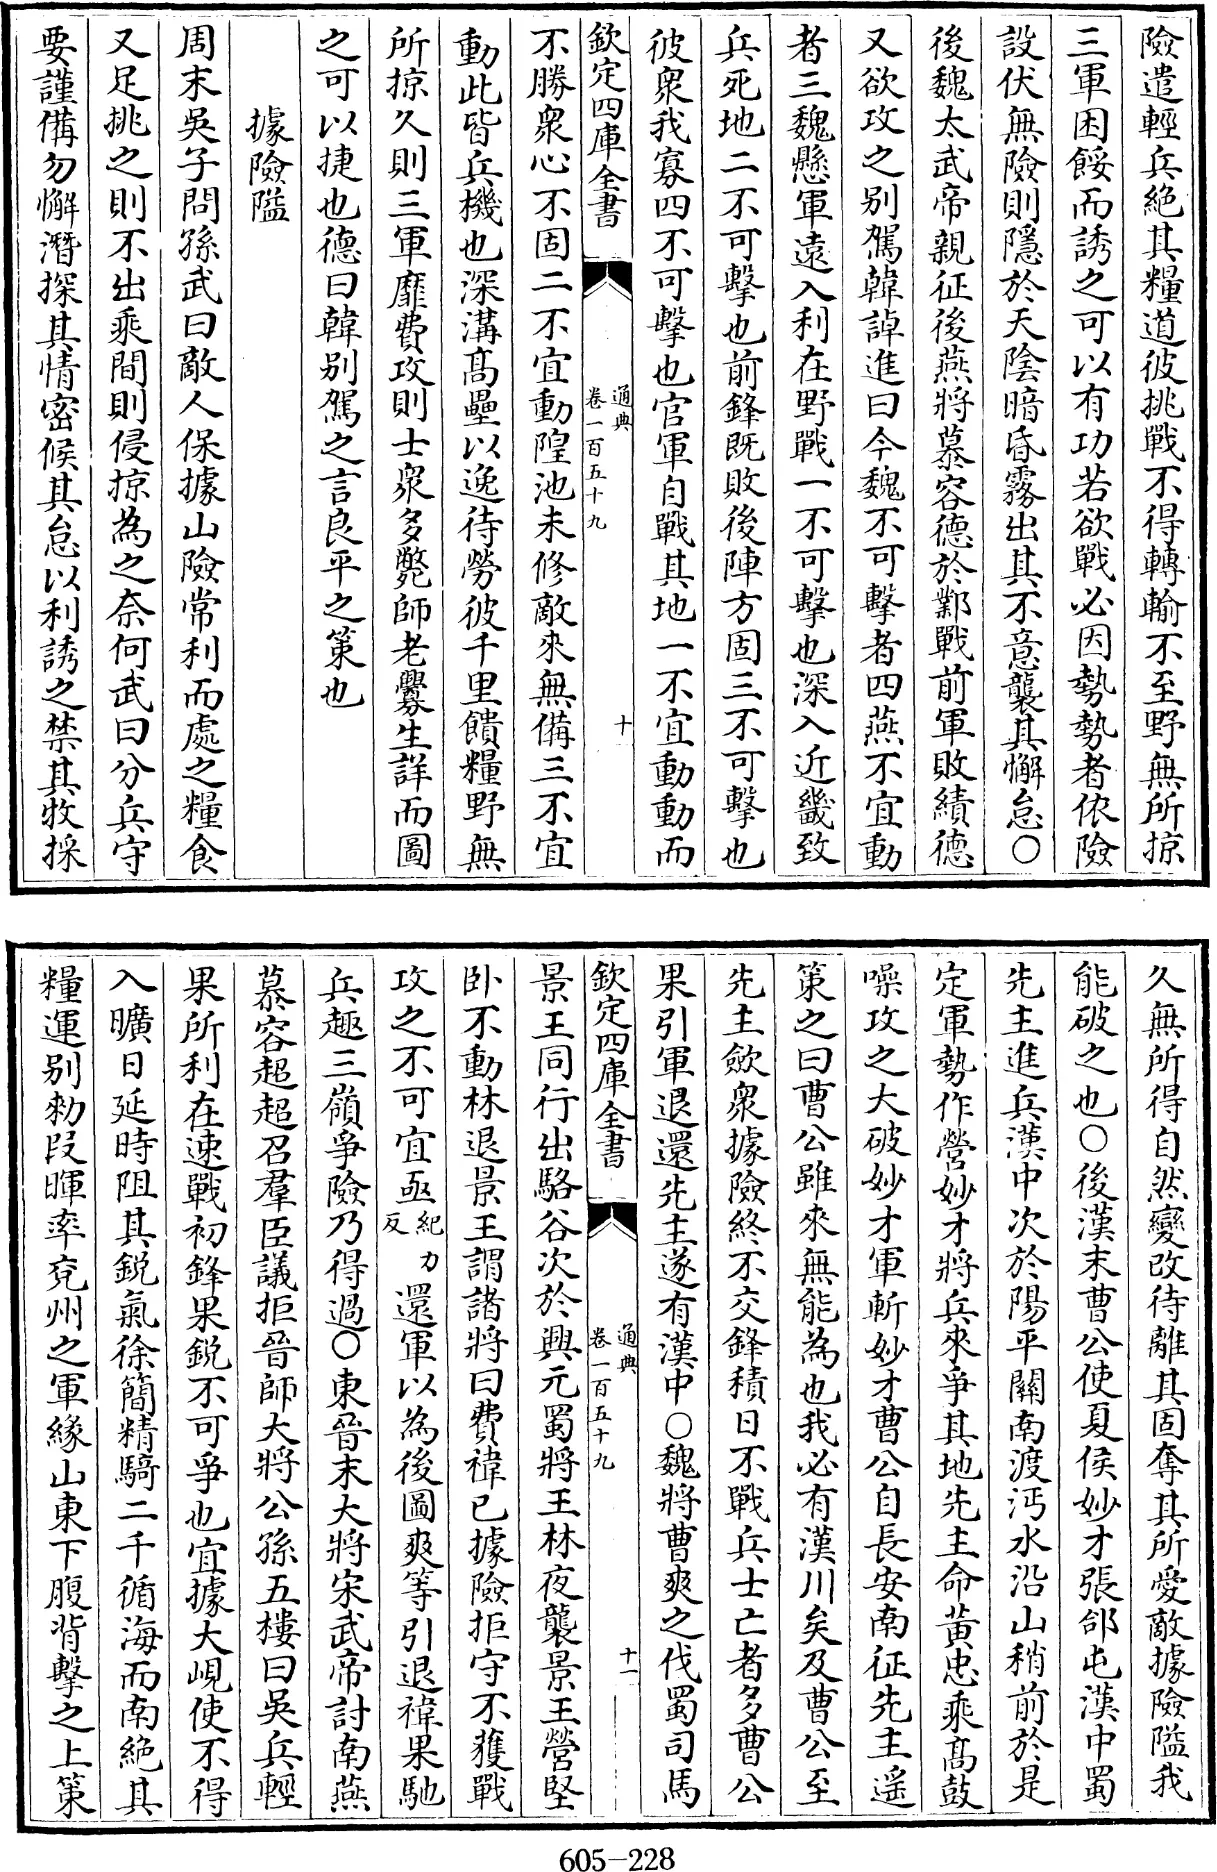 險遣輕兵絶其糧道彼挑戰不得轉輸不至野無所掠
三軍困餒而誘之可以有功若欲戰必因勢勢者依險
設伏無險則隱於天陰暗昏霧出其不意襲其懈怠○
後魏太武帝親征後燕將慕容德於鄴戰前軍敗績德
又欲攻之别駕韓𧨳進曰今魏不可擊者四燕不宜動
者三魏懸軍遠入利在野戰一不可擊也深入近畿致
兵死地二不可擊也前鋒既敗後陣方固三不可擊也
彼衆我寡四不可擊也官軍自戰其地一不宜動動而
欽定四庫全書
通典
卷一百五十九
十
不勝衆心不固二不宜動隍池未修敵來無備三不宜
動此皆兵機也深溝髙壘以逸待勞彼千里饋糧野無
所掠久則三軍靡費攻則士衆多斃師老釁生詳而圖
之可以捷也德曰韓别駕之言良平之策也
據險隘
周末吳子問孫武曰敵人保據山險常利而處之糧食
又足挑之則不出乘間則侵掠為之奈何武曰分兵守
要謹備勿懈潛探其情密候其怠以利誘之禁其牧採
久無所得自然變改待離其固奪其所愛敵據險隘我
能破之也○後漢末曹公使夏侯妙才張郃屯漢中蜀
先主進兵漢中次於陽平關南渡沔水沿山稍前於是
定軍勢作營妙才將兵來爭其地先主命黄忠乘髙鼓
噪攻之大破妙才軍斬妙才曹公自長安南征先主遥
策之曰曹公雖來無能為也我必有漢川矣及曹公至
先主斂衆據險終不交鋒積日不戰兵士亡者多曹公
果引軍退還先主遂有漢中○魏將曹爽之伐蜀司馬
欽定四庫全書
通典
卷一百五十九
十一
景王同行出駱谷次於興元蜀將王林夜襲景王營堅
卧不動林退景王謂諸將曰費禕已據險拒守不獲戰
攻之不可宜亟紀力反還軍以為後圖爽等引退禕果馳
兵趣三嶺爭險乃得過○東晉末大將宋武帝討南燕
慕容超超召羣臣議拒晉師大將公孫五樓曰吳兵輕
果所利在速戰初鋒果鋭不可爭也宜據大峴使不得
入曠日延時阻其鋭氣徐簡精騎二千循海而南絶其
糧運别勑叚暉率兖州之軍緣山東下腹背擊之上策
605-228